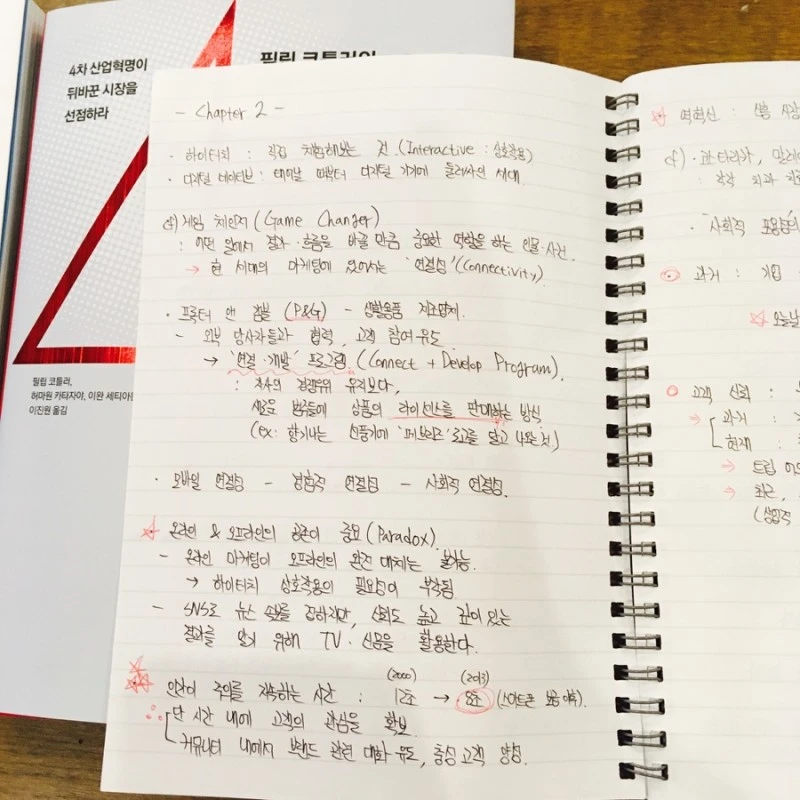 4차 산업혁명이
뒤바꾼 시장을
선점하라
필립 코틀러의
필립 코틀러,
허마원 카타자야, 이완 세티아완
이진원 옮김
- Chapter 2 -
· 하이터치 : 직접 체험해보는 것. (Interactive : 상호작용)
· 디지털 네이티브 : 태어날 때부터 디지털 기기에 둘러싸인 세대
cf) 게임 체인저 (Game Changer)
: 어떤 일에서 결과·흐름을 바꿀 만큼 중요한 역할을 하는 인물·사건.
→ 현 시대의 마케팅에 있어서는 '연결성' (Connectivity).
· 프록터 앤 갬블 (P&G) - 생활용품 제조업체.
- 외부 당사자들과 협력, 고객 참여 유도
→ '연결·개발' 프로그램. (Connect + Develop Program).
: 자사의 경쟁우위 유지보다,
새로운 상품의 라이선스를 판매하는 방식
(ex: 향기나는 선풍기에 '페브리즈' 로고를 달고 나오는 것.)
· 모바일 연결성 - 경험적 연결성 - 사회적 연결성.
☆ 온라인 & 오프라인의 공존이 중요 (Paradox).
- 온라인 마케팅이 오프라인의 완전 대체는 불가능.
→ 하이터치 상호작용의 필요성이 부각됨
- SNS로 뉴스 를 접하지만, 신뢰도 높고 깊이 있는
결과를 얻기 위해 TV·신문을 활용한다.
(2000) (2013)
☆☆ 인간이 주의를 지속하는 시간 : 12초 → 8초 (스마트폰 보급 이후).
∴ 단 시간 내에 고객의 관심을 확보
커뮤니티 내에서 브랜드 관련 대화 유도, 충성 고객 양성
☆ 역혁신 : 신흥 시장
cf)
: 각각 치과 치료
· 사회적 포용성의
과거 : 기업
☆ 오늘날
고객 신뢰 :
→ 과거 :
현재 :
→ 트립 어드
→ 최근,